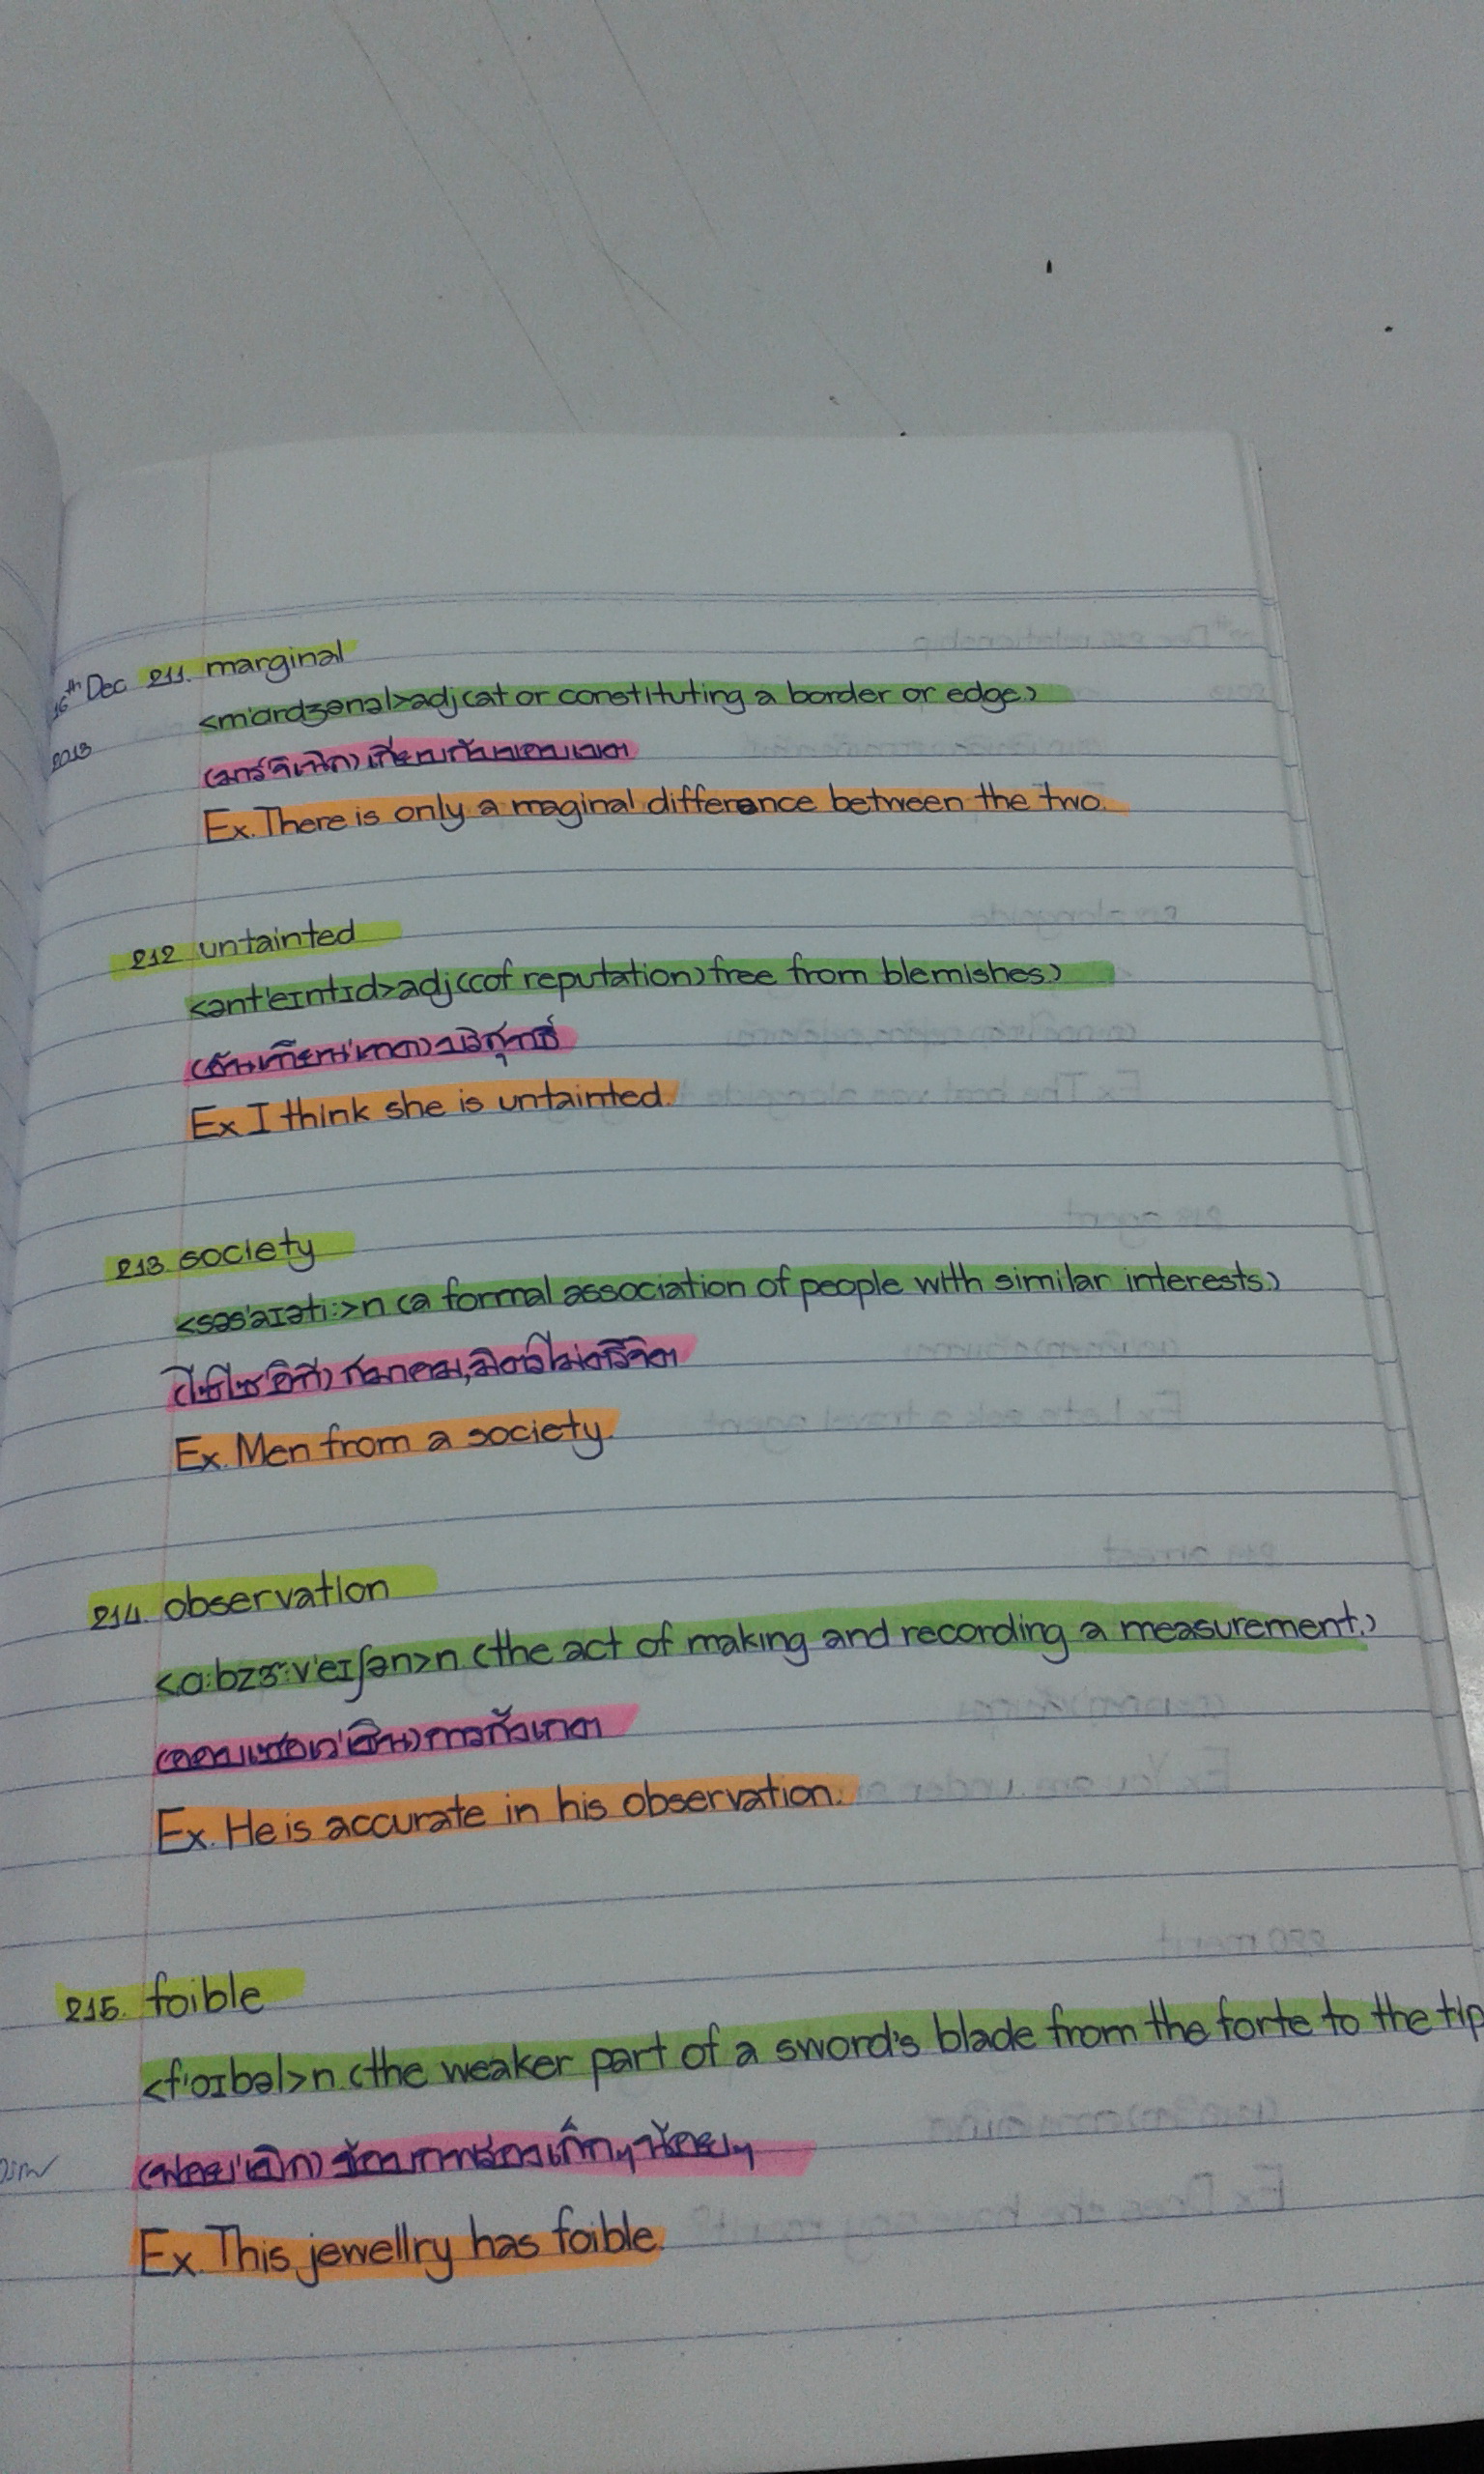 16th Dec 211. marginal
2013 <m'ardʒənəl>adj(at or constituting a border or edge.)
(มาร์'จิเนิล) เกี่ยวกับขอบเขต
Ex. There is only a maginal difference between the two.
212 untainted
<ənt'eɪntɪd>adj((of reputation) free from blemishes.)
บริสุทธิ์
Ex I think she is untainted.
213. society
<səs'aɪəti:>n (a formal association of people with similar interests.)
สมาคม, มิตรไมตรีจิต
Ex. Men from a society.
214. observation
<a:bzɜ:v'eɪʃən>n. (the act of making and recording a measurement.)
การสังเกต
Ex. He is accurate in his observation.
215. foible
<f'ɔɪbəl>n. (the weaker part of a sword's blade from the forte to the tip
(ฟอย'เบิล) ข้อบกพร่องเล็กๆน้อยๆ
Ex. This jewellry has foible.